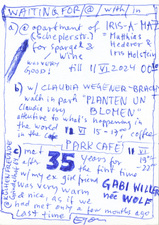 WAITING FOR @ with/in
a) @ apartment of IRIS-A-MAZ
(sculptress).
for Spargel &
wine
= Matthias
Hederer &
Iris Hölstein
WAS VERY
GOOD!
till 11/VI 2024 00
b) w/ CLAUDIA WEGENER-BRACH
walk in park "PLANTEN UN
BLOMEN"
Claudia very
attentive to what's happening in
the world
in the café 12/VI 15-17 coffee
PARK CAFÉ!
c) met
after 35 years for
the first time
my ex girl friend
was very warm
& nice, as if we
had met only a few months ago
last time
GABI WILLER
née WOLF